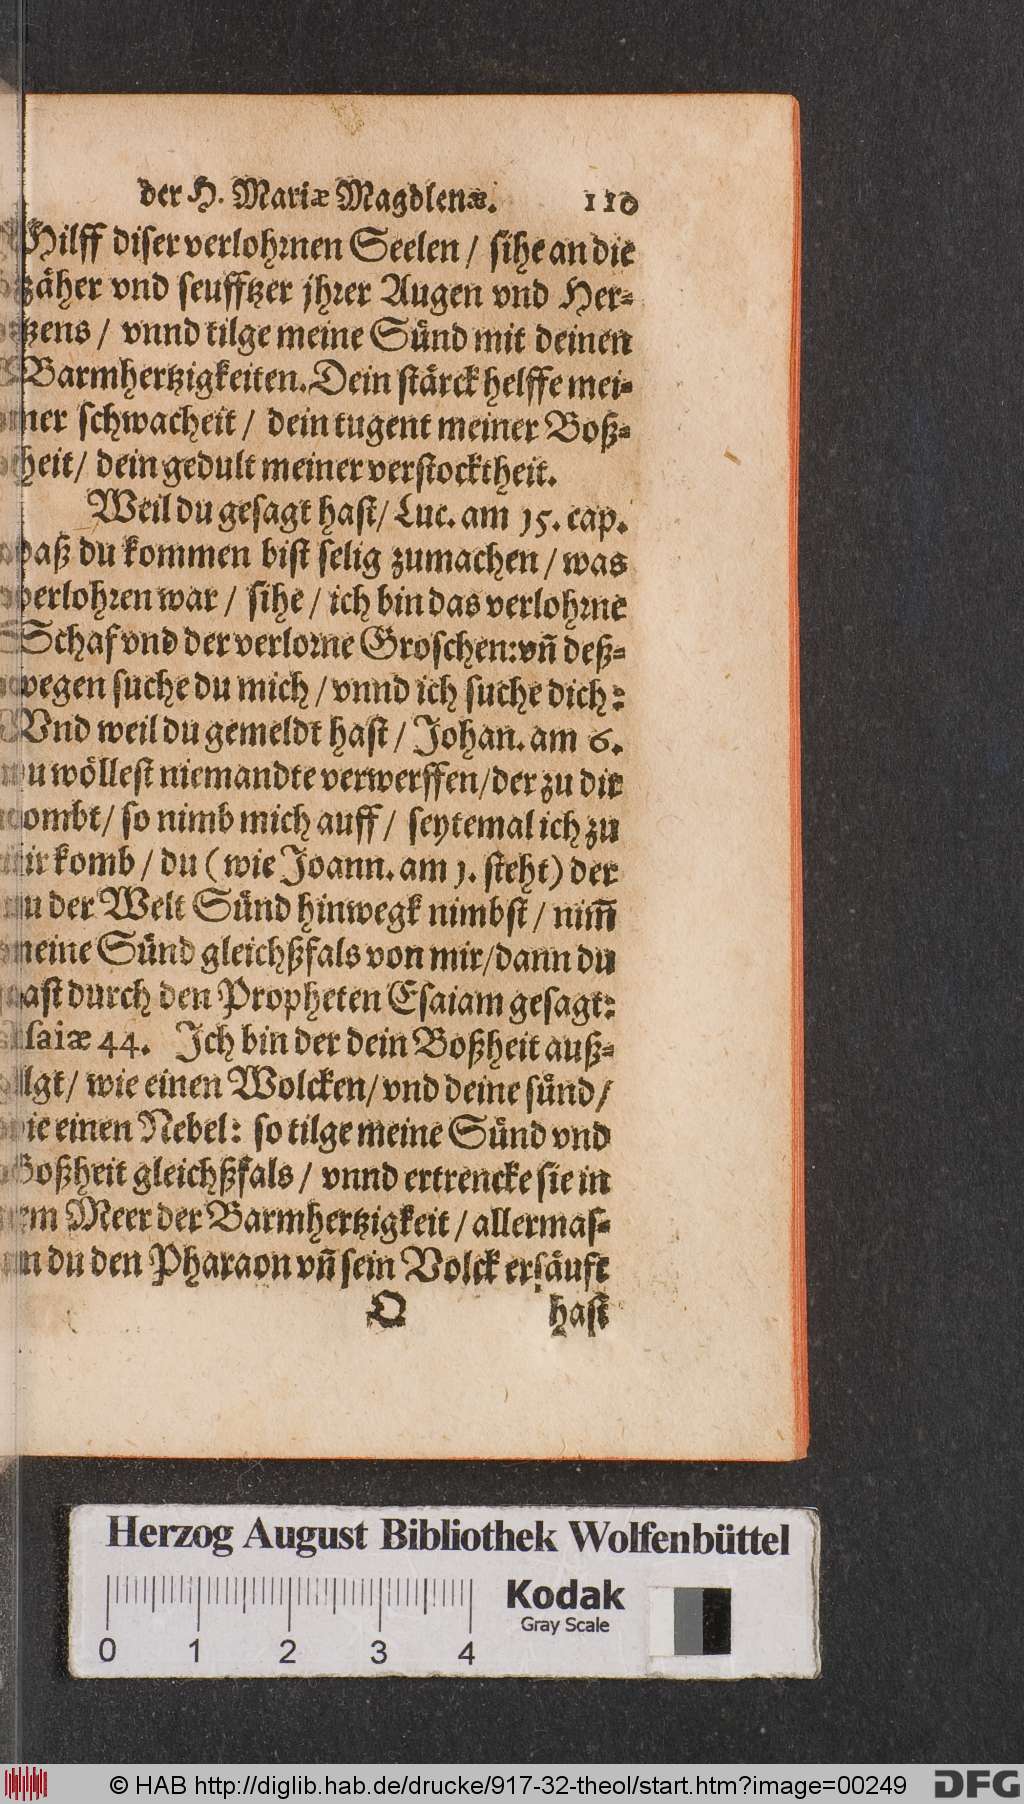 der H. Mariæ Magdlenæ. 110
Hilff diser verlohrnen Seelen / sihe an die
zäher vnd seufftzer jhrer Augen vnd Her-
tzens / vnnd tilge meine Sünd mit deinen
Barmhertzigkeiten. Dein stärck helffe mei-
ner schwacheit / dein tugent meiner Boß-
heit / dein gedult meiner verstocktheit.
Weil du gesagt hast / Luc. am 15. cap.
daß du kommen bist selig zumachen / was
verlohren war / sihe / ich bin das verlohrne
Schaf vnd der verlorne Groschen: vñ deß-
wegen suche du mich / vnnd ich suche dich:
Vnd weil du gemeldt hast / Johan. am 6.
du wöllest niemandte verwerffen / der zu dir
kombt / so nimb mich auff / seytemal ich zu
dir komb / du ( wie Joann. am 1. steht) der
du der Welt Sünd hinwegk nimbst / nim̃
meine Sünd gleichßfals von mir / dann du
hast durch den Propheten Esaiam gesagt:
Esaiæ 44. Ich bin der dein Boßheit auß-
tilgt / wie einen Wolcken / vnd deine sünd /
wie einen Nebel: so tilge meine Sünd vnd
Boßheit gleichßfals / vnnd ertrencke sie in
dem Meer der Barmhertzigkeit / allermas-
sen du den Pharaon vñ sein Volck ersäuft
O hast
Herzog August Bibliothek Wolfenbüttel
Kodak
Gray Scale
0 1 2 3 4
© HAB http://diglib.hab.de/drucke/917-32-theol/start.htm?image=00249
DFG